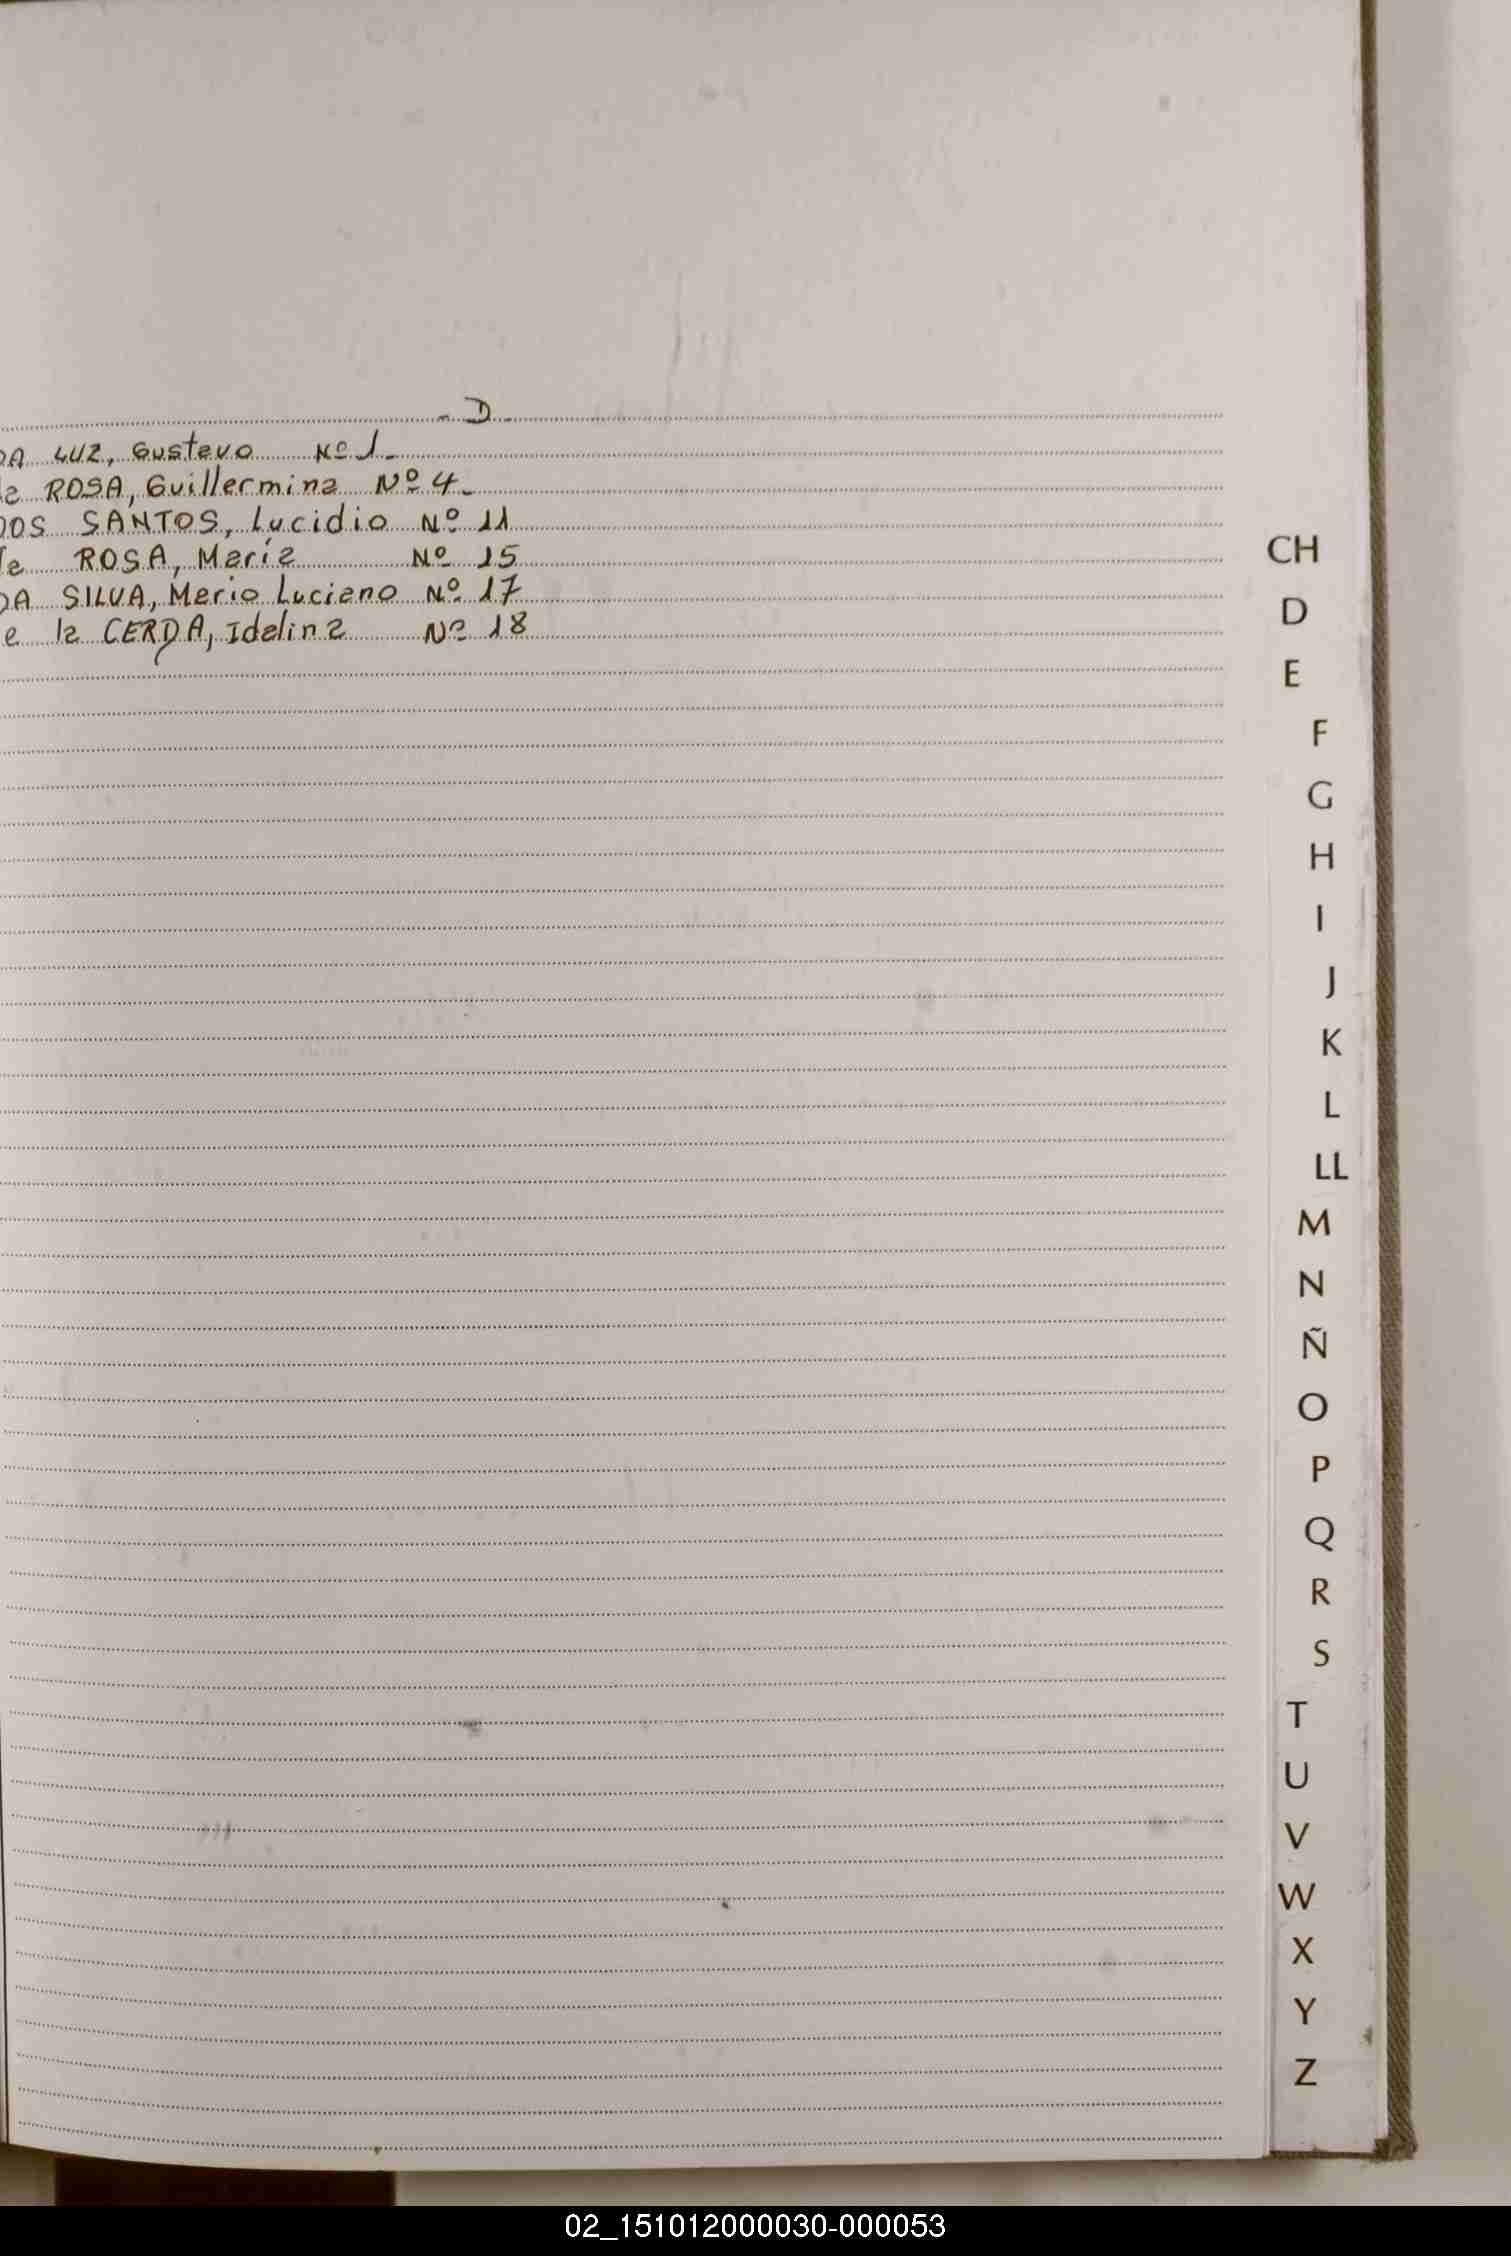 - D -
DA LUZ, Gustavo Nº 1-
de ROSA, Guillermina Nº 4-
DOS SANTOS, Lucidio Nº 11
de ROSA, María Nº 15
DA SILVA, Mario Luciano Nº 17
de la CERDA, Idalina Nº 18
CH
D
E
F
G
H
I
J
K
L
LL
M
N
Ñ
O
P
Q
R
S
T
U
V
W
X
Y
Z
02_151012000030-000053